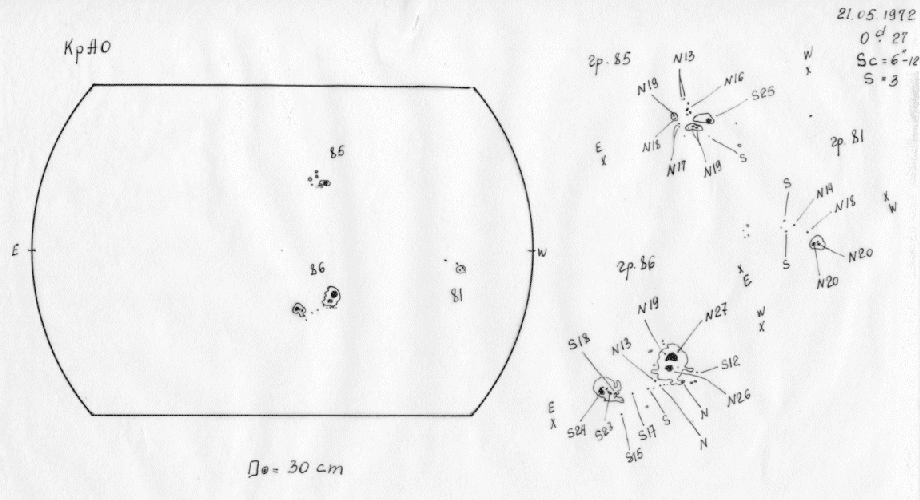 21.05.1972
0ᵈ.27
Sc = 6"-12
S = 3
КрАО
85
E
W
86
81
D⊙ = 30 cm
гр. 85
W
X
N13
N19
N16
S25
N18
N17
N19
S
E
X
гр. 81
S
N14
N18
X
W
S
N20
N20
X
E
гр. 86
W
X
N19
N27
S18
N13
S12
N26
E
X
S24
S23
S15
S17
S
N
N